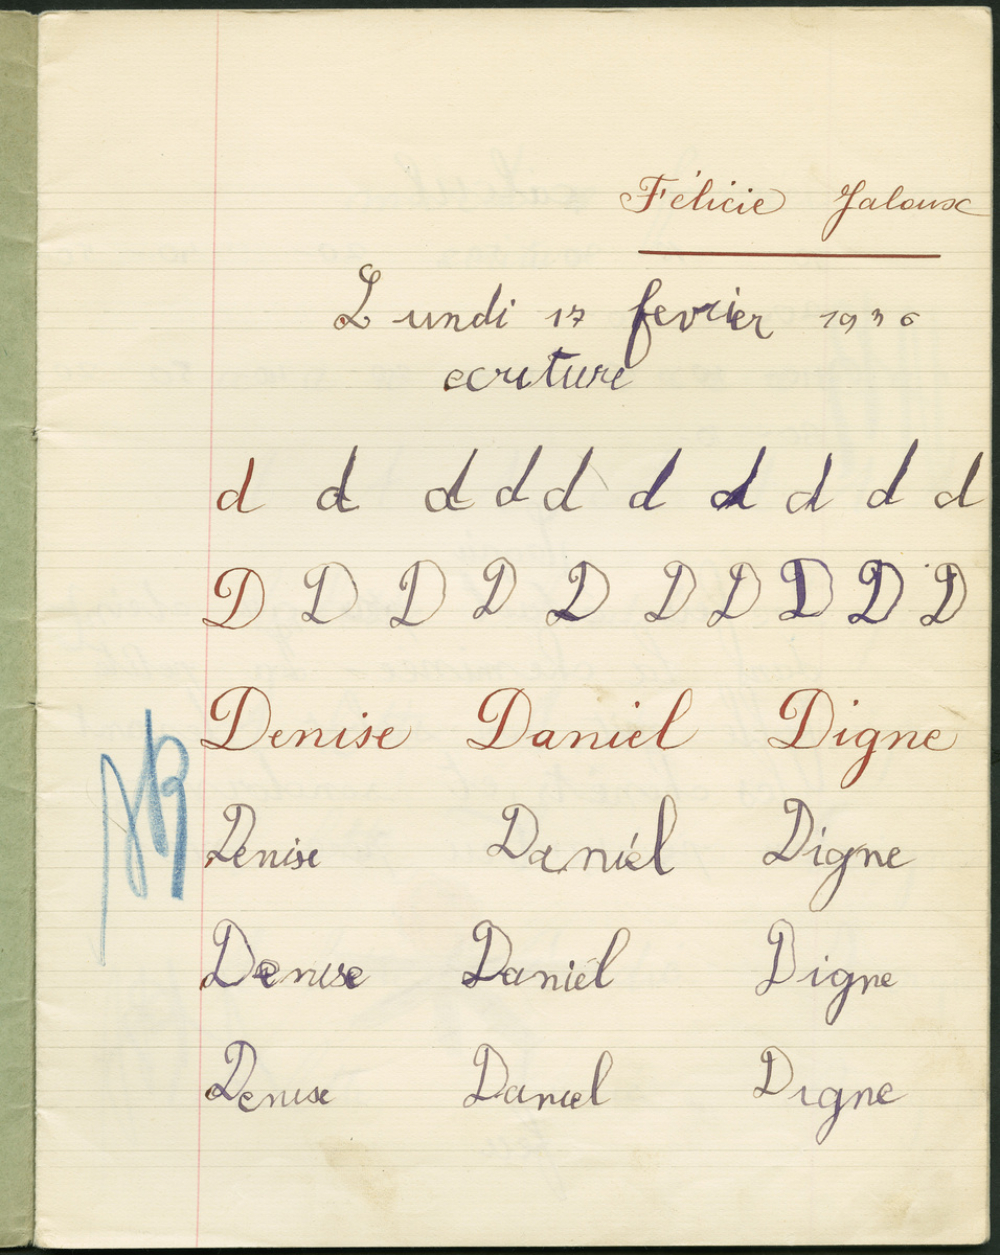 Félicie Jaloux
Lundi 17 fevrier 1936
ecriture
d d d d d d d d d d
D D D D D D D D D D
Denise Daniel Digne
Denise Daniél Digne
Denise Daniel Digne
Denise Daniel Digne